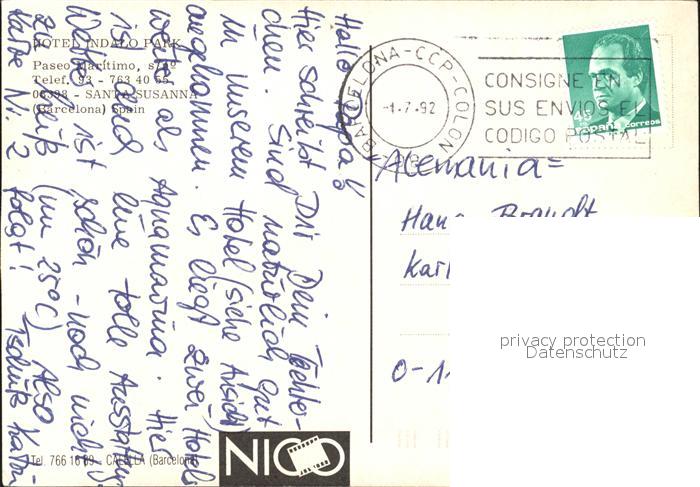 HOTEL INDALO PARK
Paseo Marítimo, s/nº
Telef. 93 - 763 40 55
08398 - SANTA SUSANNA
(Barcelona) Spain
Hallo Papa!
Hier schreibt Dir Dein Töchter-
chen. Sind natürlich gut
in unserem Hotel (siehe Ansicht)
angekommen. Es liegt zwei Hotels
weiter als Aquamarina. Hier
ist und eine tolle Ausstattung.
Wetter ist schön - noch nicht
zu heiß (nur 25°C) Also
Karte Nr. 2 folgt! Tschüß Katrin
BARCELONA-CCP-COLON
-1.-7.-92
CONSIGNE EN
SUS ENVIOS EL
CODIGO POSTAL
45
España correos
=Alemania=
Hans Brandt
Karl
O-1
privacy protection
Datenschutz
Tel. 766 16 89 - CALELLA (Barcelona)
NICO